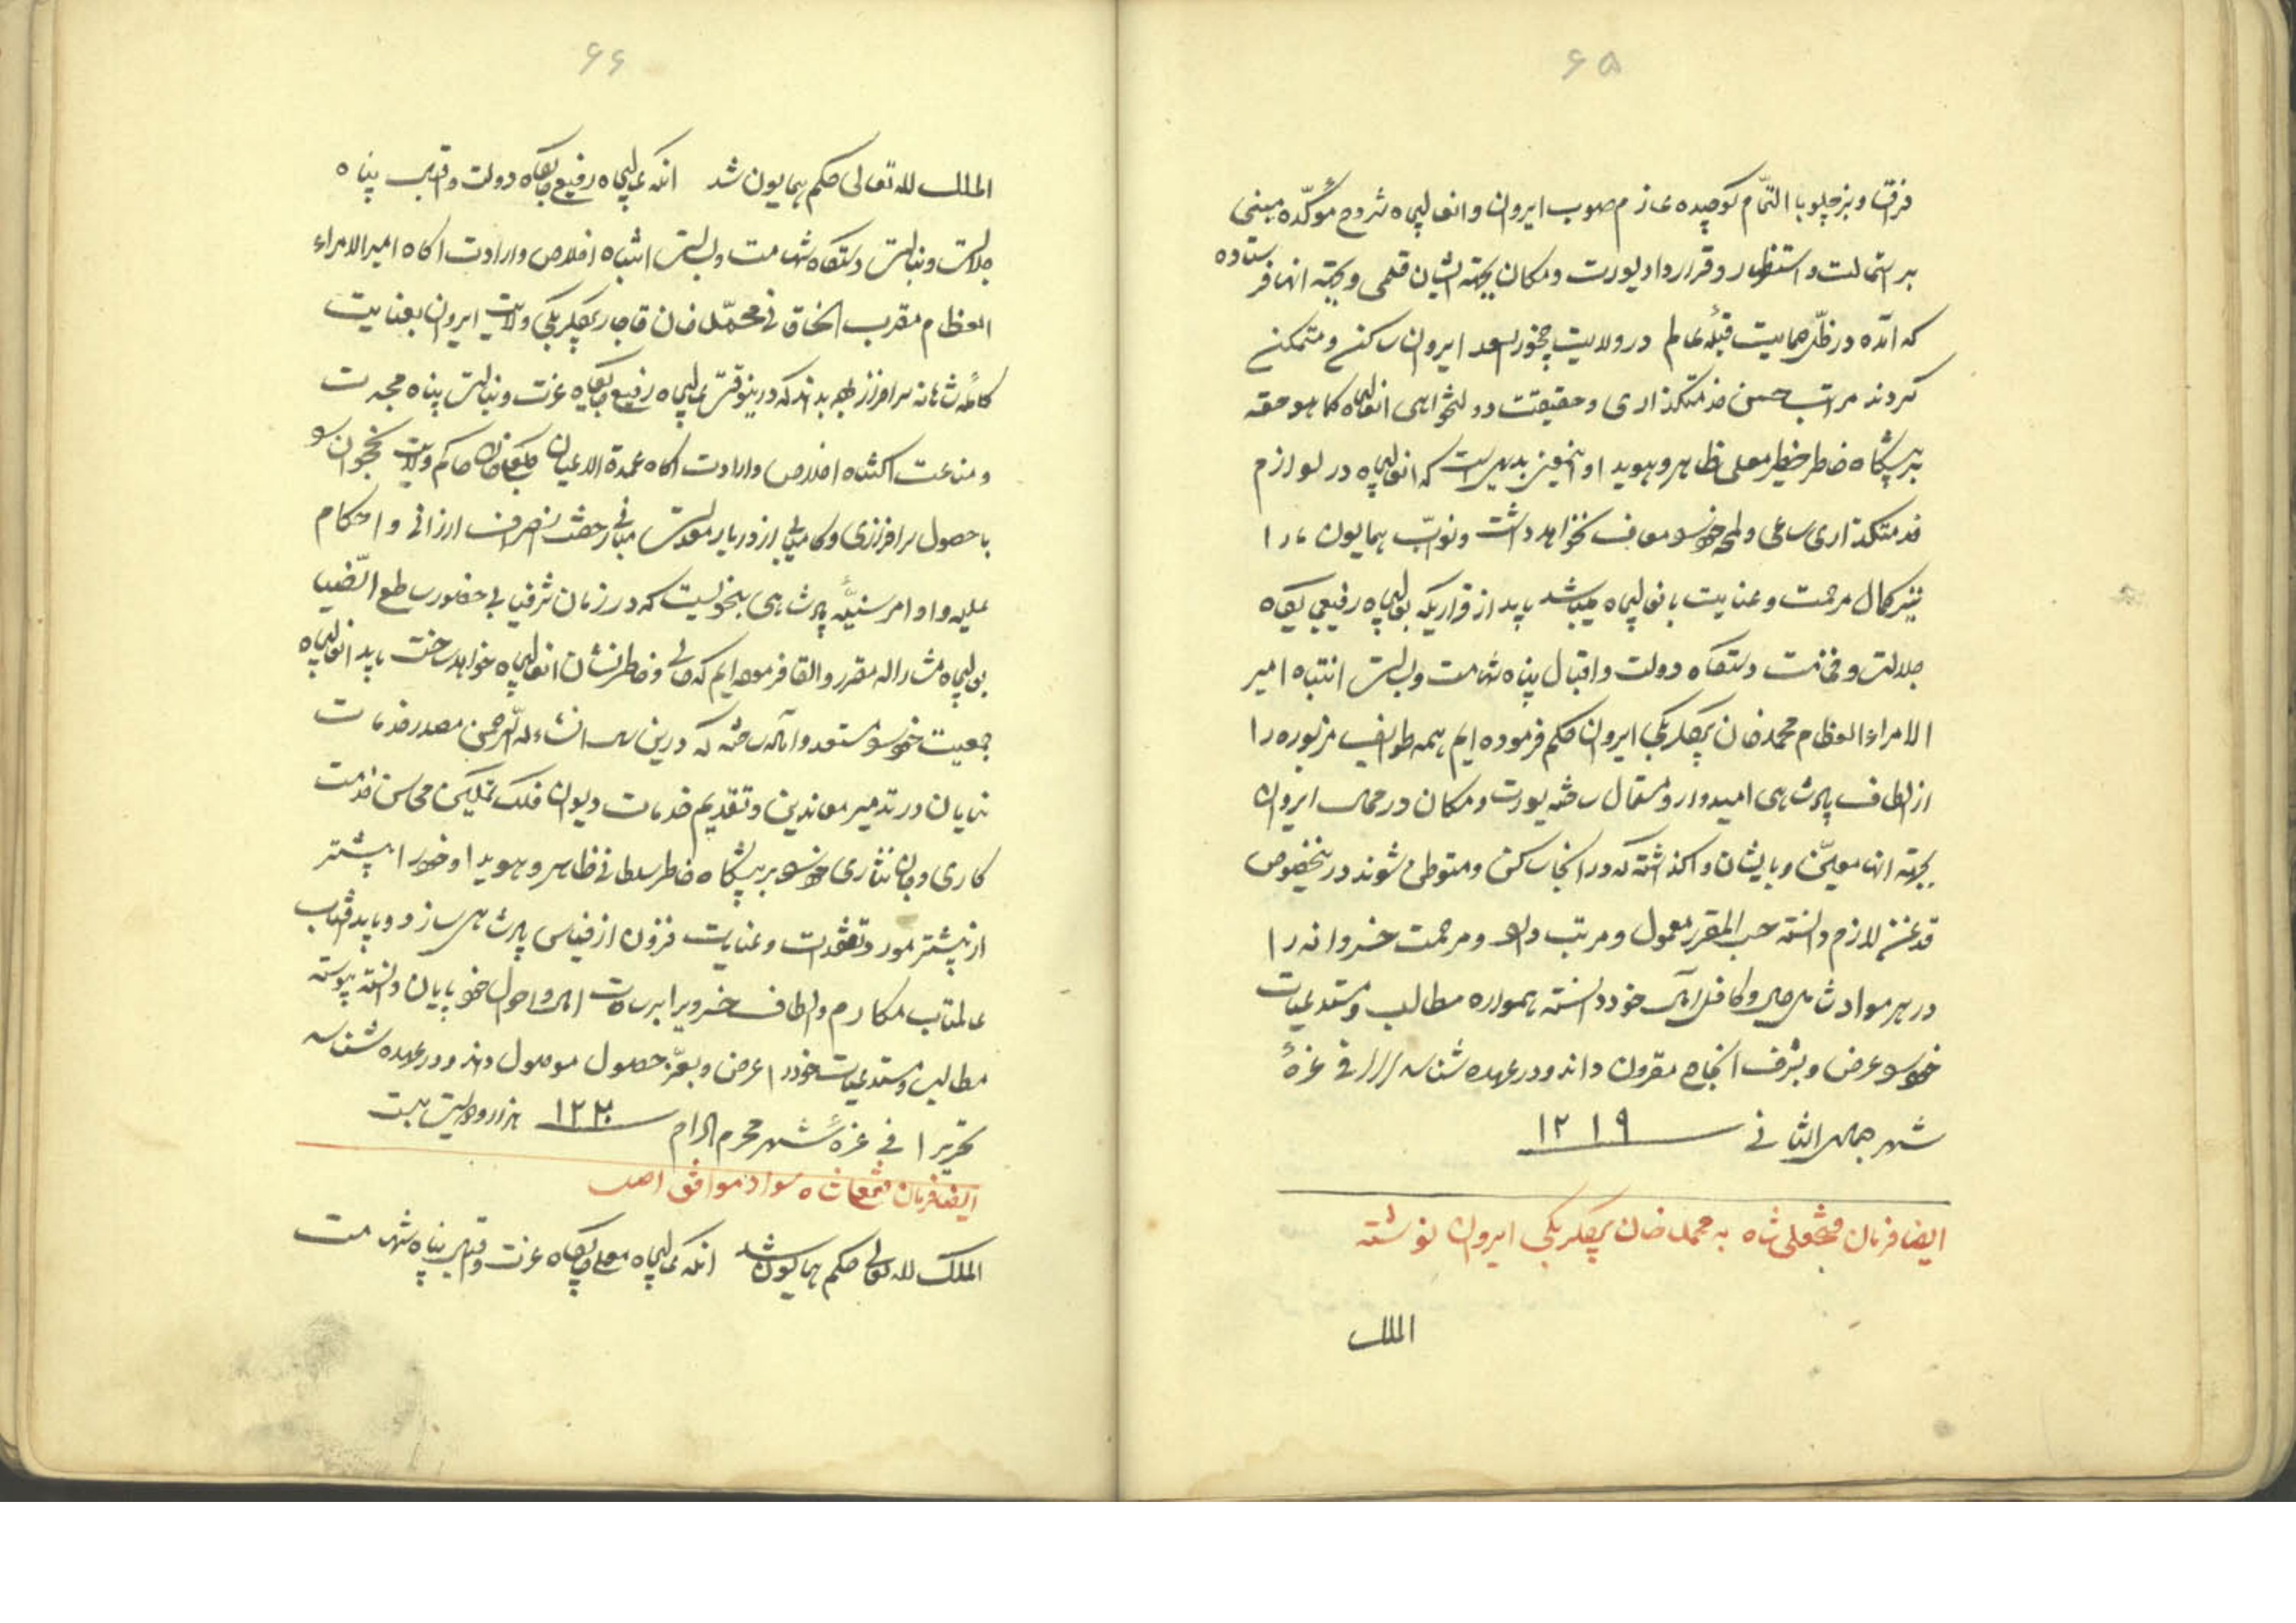 ۶۵
و بزچلو بالتمام کوچیده عازم صوب ایروان و انعالیجاه شروح مؤکده مبنی
بر استمالت و استظهار و قرارداد یورت و مکان بجهته ایشان قلمی و بجهته انها فرستاده
که آمده در ظل حمایت قبله عالم در ولایت چخور سعد ایروان ساکن و متمکن
گردند مراتب حسن خدمتگذاری و حقیقت دولتخواهی انعالیجاه کما هو حقه
بر پیشگاه خاطر خطیر معلی ظاهر و هویدا و اینمعنی بدیهی است که انعالیجاه در لوازم
خدمتگذاری ساعی و لمحه خود را معاف نخواهد داشت و نواب همایون ما را
نیز کمال مرحمت و عنایت بانعالیجاه میباشد باید از قراریکه بعالیجاه رفیع جایگاه
جلالت و فخامت دستگاه دولت و اقبال پناه شهامت و بسالت انتباه امیر
الامراء العظام محمد خان بیگلربیگی ایروان حکم فرموده ایم همه طوایف مزبوره را
از الطاف پادشاهی امیدوار و مستمال ساخته یورت و مکان در محال ایروان
بجهته انها معین و بایشان واگذاشته که در انجا ساکن و متوطن شوند در اینخصوص
قدغن لازم دانسته حسب المقرر معمول و مرتب دارد و مرحمت خسروانه را
در هر مواد شامل حال و کافل آمال خود دانسته همواره مطالب و مستدعیات
خود را عرض و بشرف انجاح مقرون داند و در عهده شناسد تحریرا فی غره
شهر جمادی الثانی ۱۲۱۹
ایضا فرمان فتحعلی شاه به محمد خان بیگلربیگی ایروان نوشته
الملک
۶۶
الملک لله تعالی حکم همایون شد انکه عالیجاه رفیع جایگاه دولت و اقبال پناه
جلالت و نبالت دستگاه شهامت و بسالت انتباه اخلاص و ارادت اگاه امیر الامراء
العظام مقرب الخاقانی محمد خان قاجار بیگلربیگی ولایت ایروان بعنایت
کامله شاهانه سرافراز بوده بداند که در اینوقت عالیجاه رفیع جایگاه عزت و نبالت پناه مجدت
و مناعت اکتناه اخلاص و ارادت اگاه عمدة الاعیان کلبعلی خان حاکم ولایت نخجوان را
با حصول سرافرازی و کامیابی از دربار معدلت مبانی رخصت انصراف ارزانی و احکام
علیه و اوامر سنیه پادشاهی بنحویست که در زمان شرفیابی حضور ساطع الضیا
بعالیجاه مشارالیه مقرر و القا فرموده ایم که حالی و خاطرنشان انعالیجاه خواهد ساخت باید انعالیجاه
جمعیت خود را مستعد و آماده ساخته که در این سال انشاء الله الرحمن مصدر خدمات
نمایان در تدمیر معاندین و تقدیم خدمات دیوان فلک تمکین محاسن خدمت
کاری و جان نثاری خود را بر پیشگاه خاطر سلطانی ظاهر و هویدا و خود را بیشتر
از پیشتر مورد تفقدات و عنایات فزون از قیاس پادشاهی سازد و باید آفتاب
عالمتاب مکارم و الطاف خسروی را بر ساحت امال و احوال خود پایان دانسته پیوسته
مطالب و مستدعیات خود را عرض و بعز حصول موصول داند و در عهده شناسد
تحریرا فی غره شهر محرم الحرام ۱۲۲۰ هزار و دویست بیست
ایضا فرمان فتحعلی شاه سواد موافق اصل
الملک لله تعالی حکم همایون شد انکه عالیجاه معلی جایگاه عزت و اقبال پناه شهامت